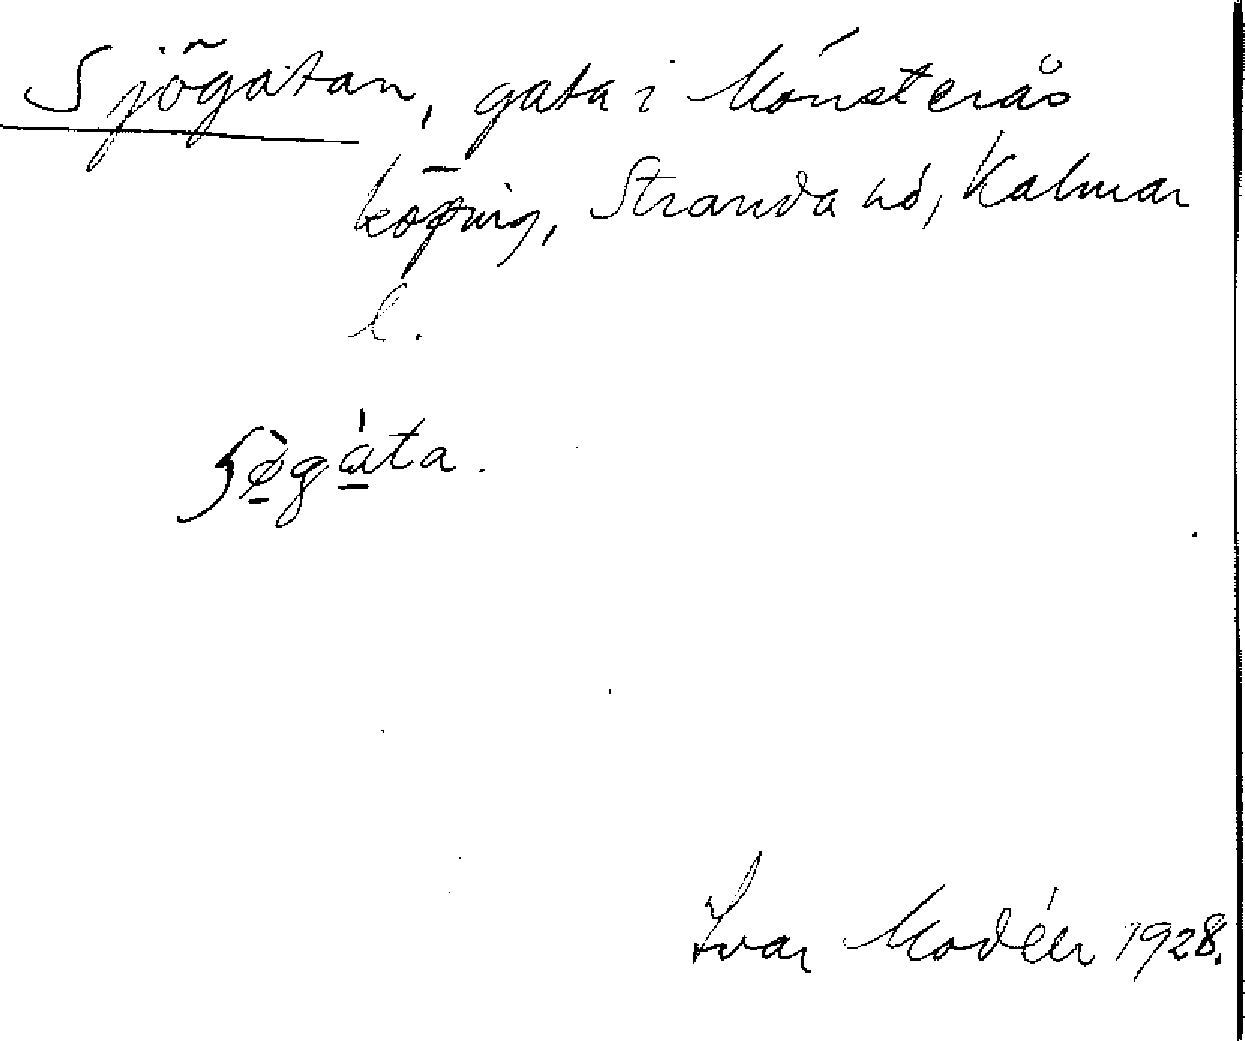 Sjögatan, gata i Mönsterås
köping, Stranda hd, Kalmar
l.
ʃø̀gáta.
Ivar Modéer 1928.